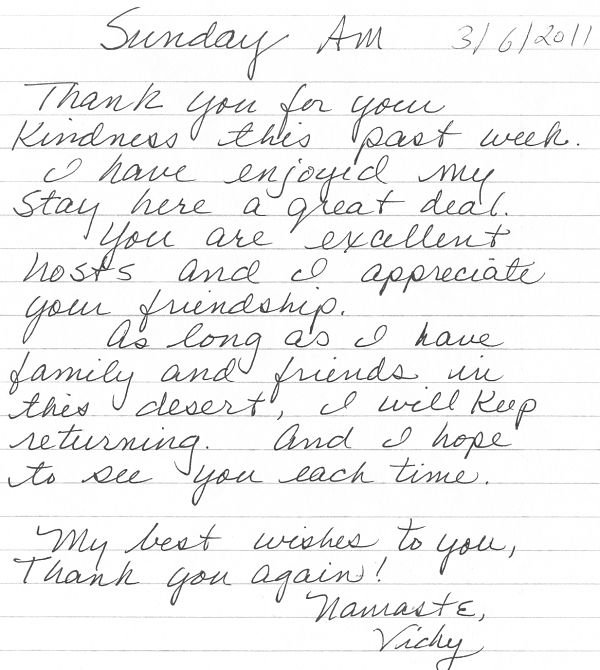 Sunday AM 3/6/2011
Thank you for your
Kindness this past week.
I have enjoyed my
Stay here a great deal.
You are excellent
hosts and I appreciate
your friendship.
As long as I have
family and friends in
this desert, I will Keep
returning. And I hope
to see you each time.
My best wishes to you,
Thank you again!
Namaste,
Vicky